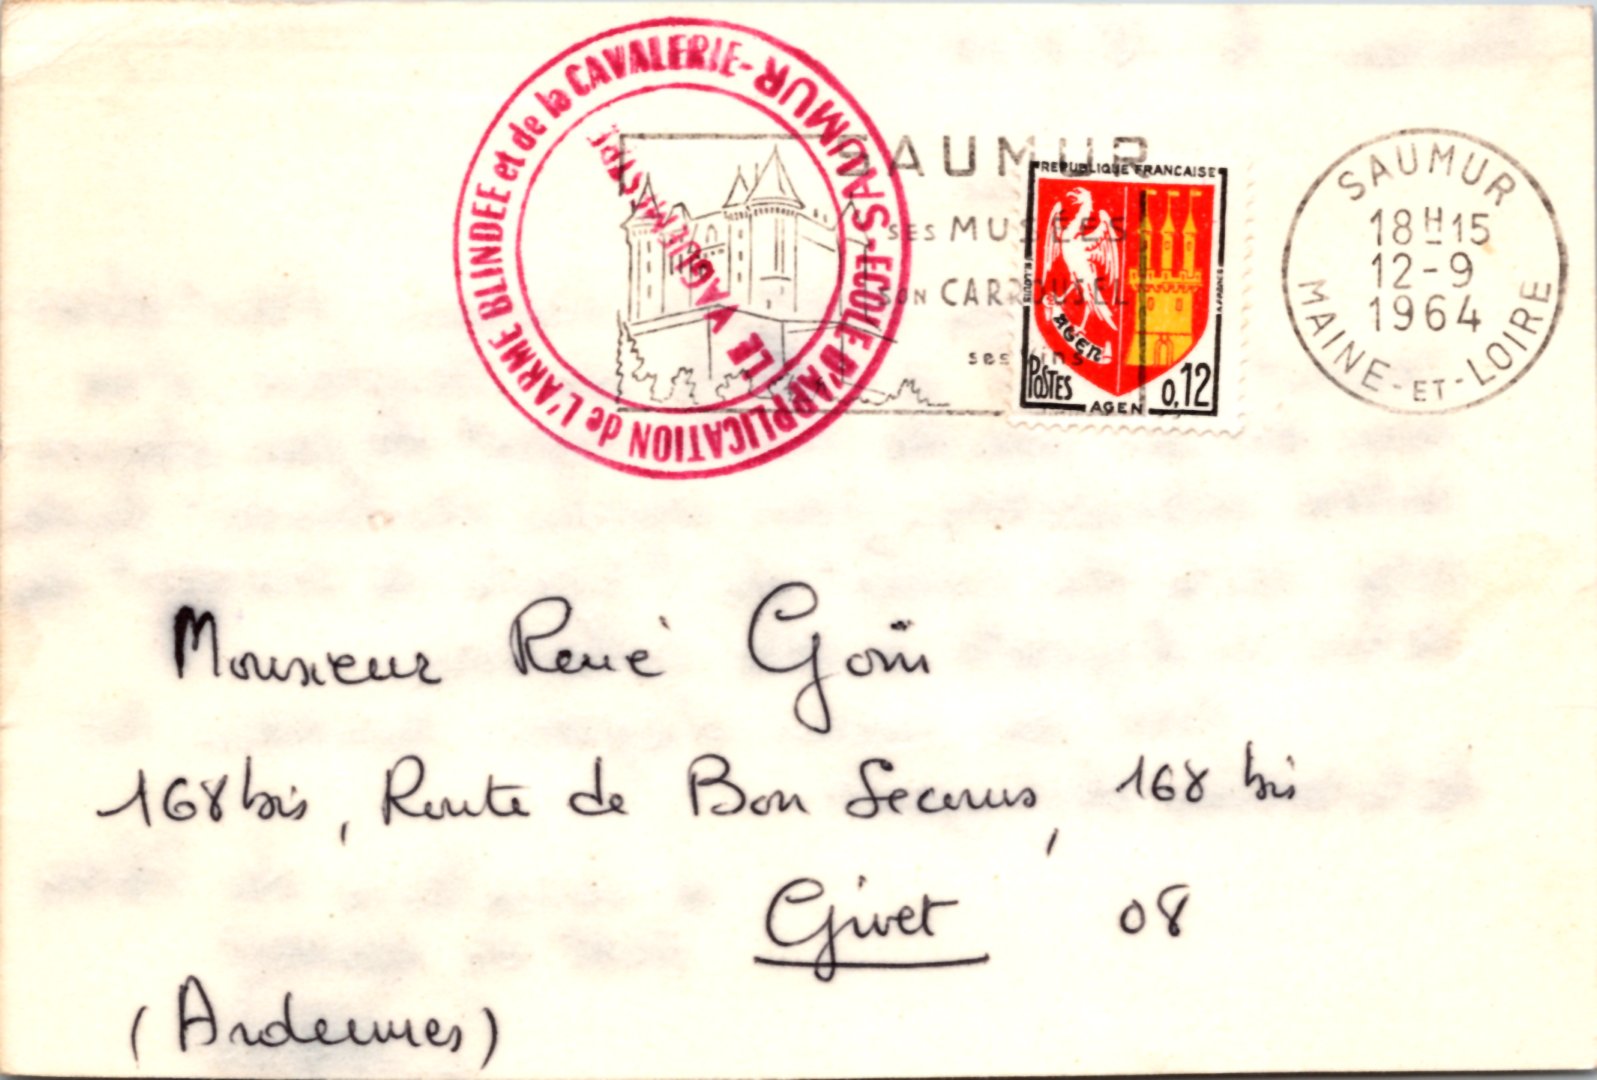 ECOLE D'APPLICATION de L'ARME BLINDEE et de la CAVALERIE - SAUMUR -
LE VAGUEMESTRE
SAUMUR
SES MUSEES
SON CARROUSEL
ses vins
REPUBLIQUE FRANCAISE
AGEN
POSTES
0,12
AGEN
SAUMUR
18H15
12-9
1964
MAINE-ET-LOIRE
Monsieur René
168 bis, Route de Bon Secours, 168 bis
Givet 08
(Ardennes)